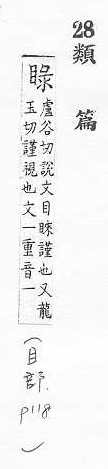 28
類篇
睩盧谷切說文目睞謹也又龍
玉切謹視也文一重音一
(目部.
p118)